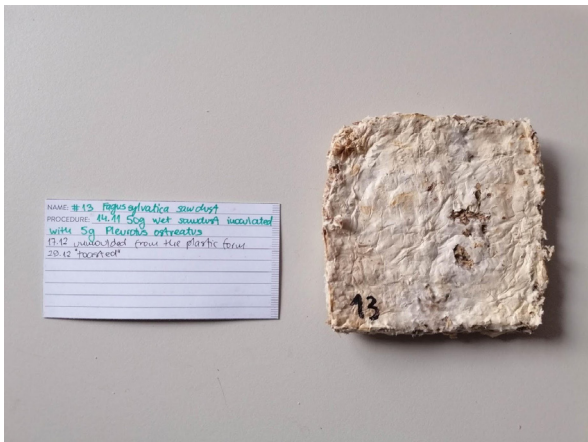 NAME: #13 Fagus sylvatica sawdust
PROCEDURE: 14.11 50g wet sawdust inoculated
with 5g Pleurotus ostreatus
17.12 unmoulded from the plastic form
"toasted"
13